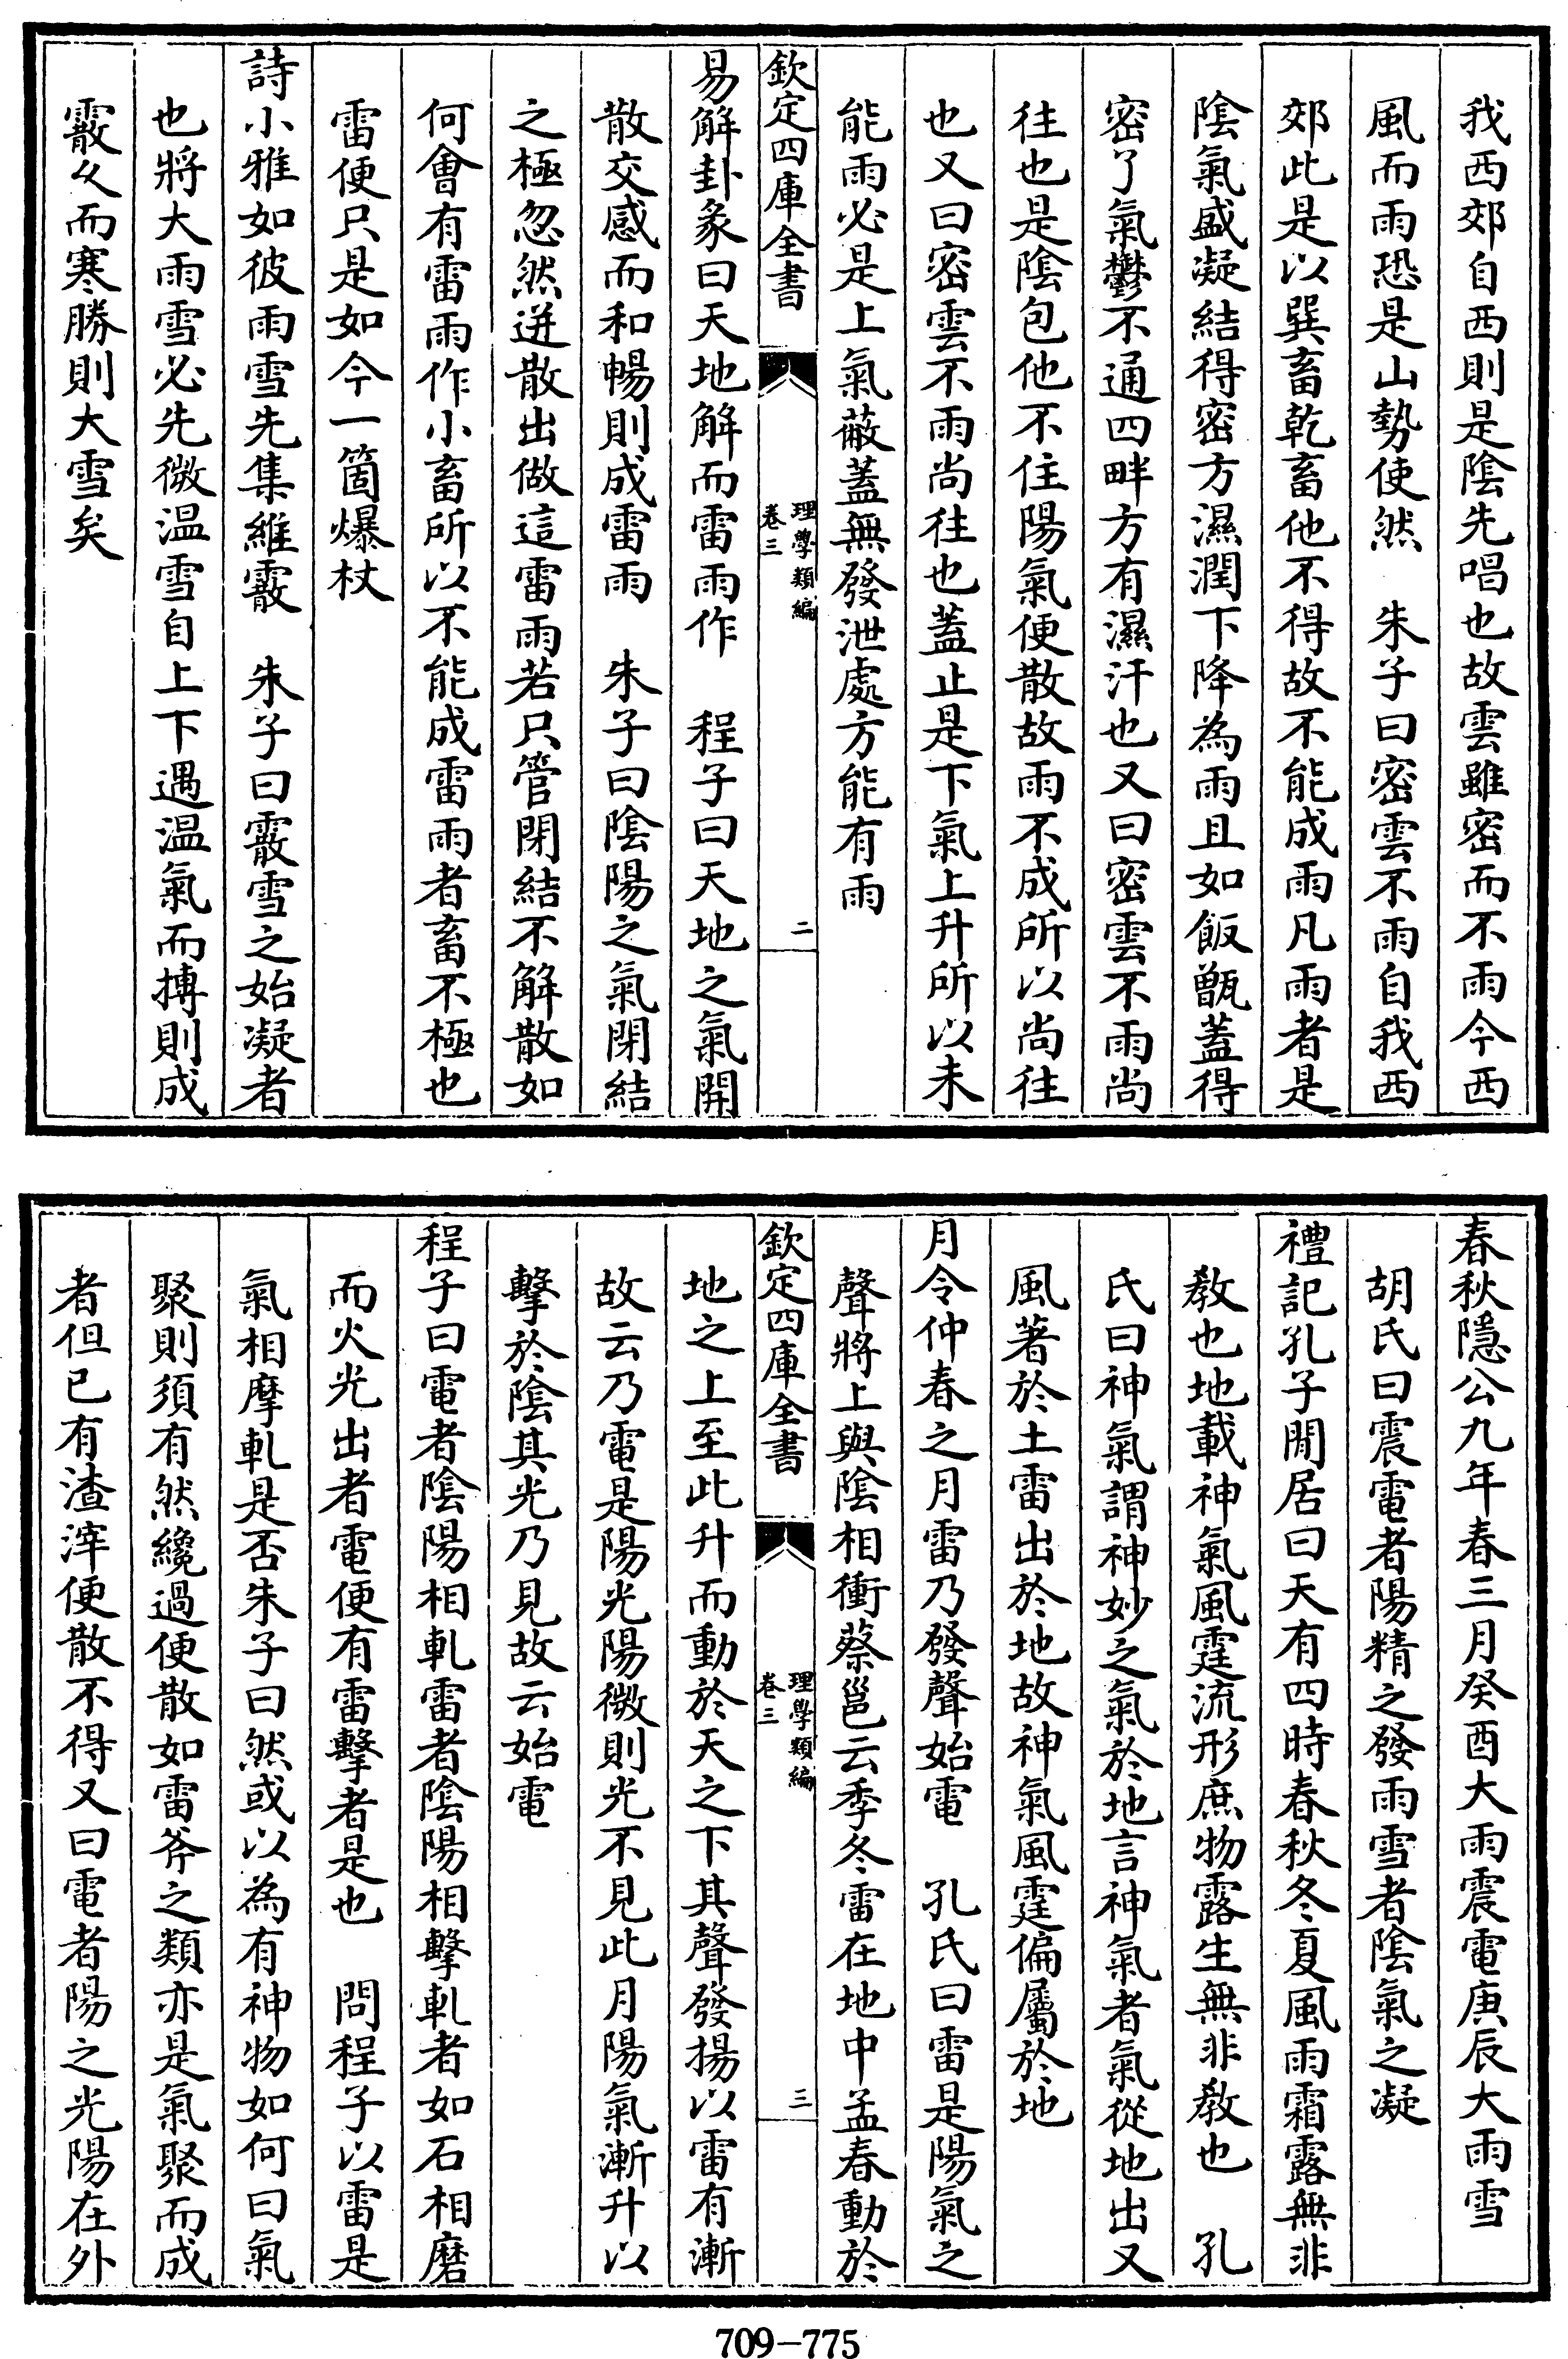 我西郊自西則是陰先唱也故雲雖密而不雨今西
風而雨恐是山勢使然　朱子曰密雲不雨自我西
郊此是以巽畜乾畜他不得故不能成雨凡雨者是
陰氣盛凝結得密方濕潤下降為雨且如飯甑蓋得
密了氣鬱不通四畔方有濕汗也又曰密雲不雨尚
往也是陰包他不住陽氣便散故雨不成所以尚往
也又曰密雲不雨尚往也蓋止是下氣上升所以未
能雨必是上氣蔽蓋無發泄處方能有雨
欽定四庫全書
理學類編
卷三
二
易解卦彖曰天地解而雷雨作　程子曰天地之氣開
散交感而和暢則成雷雨　朱子曰陰陽之氣閉結
之極忽然迸散出做這雷雨若只管閉結不解散如
何會有雷雨作小畜所以不能成雷雨者畜不極也
雷便只是如今一箇爆杖
詩小雅如彼雨雪先集維霰　朱子曰霰雪之始凝者
也將大雨雪必先微温雪自上下遇温氣而摶則成
霰久而寒勝則大雪矣
春秋隱公九年春三月癸酉大雨震電庚辰大雨雪
胡氏曰震電者陽精之發雨雪者陰氣之凝
禮記孔子閒居曰天有四時春秋冬夏風雨霜露無非
教也地載神氣風霆流形庶物露生無非教也　孔
氏曰神氣謂神妙之氣於地言神氣者氣從地出又
風著於土雷出於地故神氣風霆偏屬於地
月令仲春之月雷乃發聲始電　孔氏曰雷是陽氣之
聲將上與陰相衝蔡邕云季冬雷在地中孟春動於
欽定四庫全書
理學類編
卷三
三
地之上至此升而動於天之下其聲發揚以雷有漸
故云乃電是陽光陽微則光不見此月陽氣漸升以
擊於陰其光乃見故云始電
程子曰電者陰陽相軋雷者陰陽相擊軋者如石相磨
而火光出者電便有雷擊者是也　問程子以雷是
氣相摩軋是否朱子曰然或以為有神物如何曰氣
聚則須有然纔過便散如雷斧之類亦是氣聚而成
者但已有渣滓便散不得又曰電者陽之光陽在外
709-775